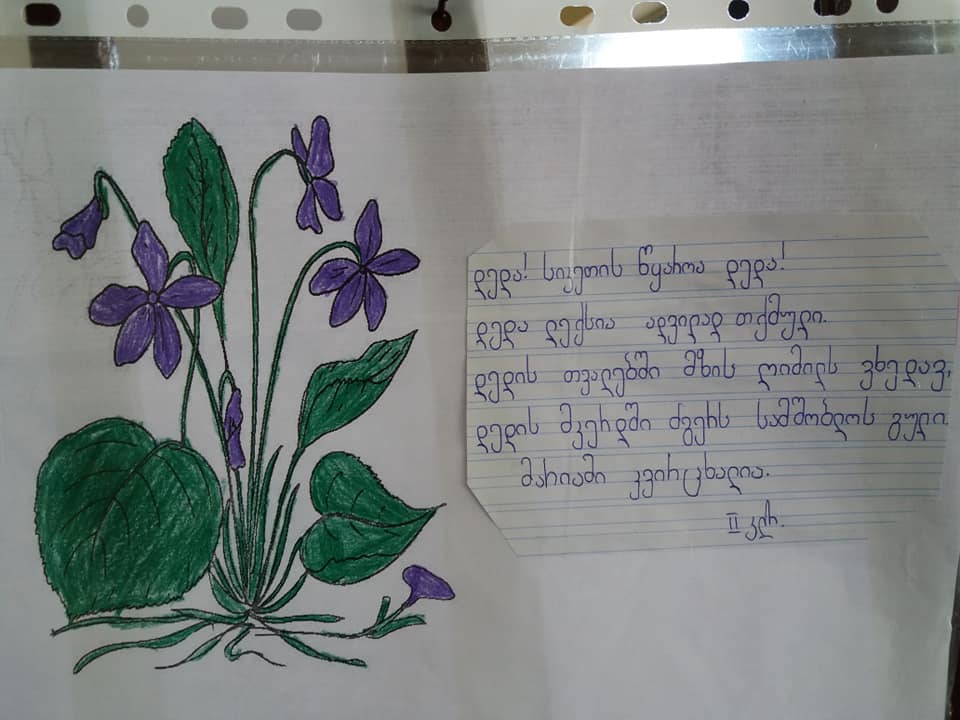 დედა! სიკეთის წყაროა დედა!
დედა ლექსია ადვილად თქმული.
დედის თვალებში მზის ღიმილს ვხედავ,
დედის მკერდში ძგერს სამშობლოს გული.
მარიამი კვირცხალია.
II კლ.